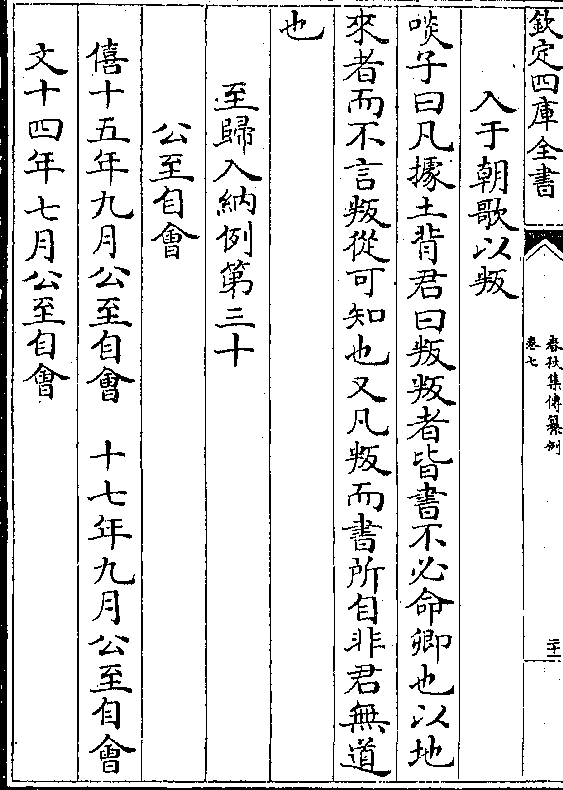 欽定四庫全書
春秋集傳纂例
卷七
二十一
入于朝歌以叛
啖子曰凡據土背君曰叛叛者皆書不必命卿也以地
來者而不言叛從可知也又凡叛而書所自非君無道
也
至歸入納例第三十
公至自會
僖十五年九月公至自會　十七年九月公至自會
文十四年七月公至自會